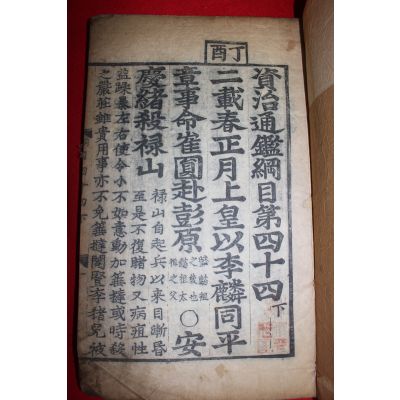 丁酉
資治通鑑綱目第四十四下
二載春正月上皇以李麟同平
章事命崔圓赴彭原
之後也
懿祖太
祖之父
○安
慶緒殺禄山
禄山自起兵以来目漸昏
至是不復睹物又病疽性
益躁暴左右使令小不如意動加箠撻或時殺
之嚴莊雖貴用事亦不免箠撻閹豎李猪兒被